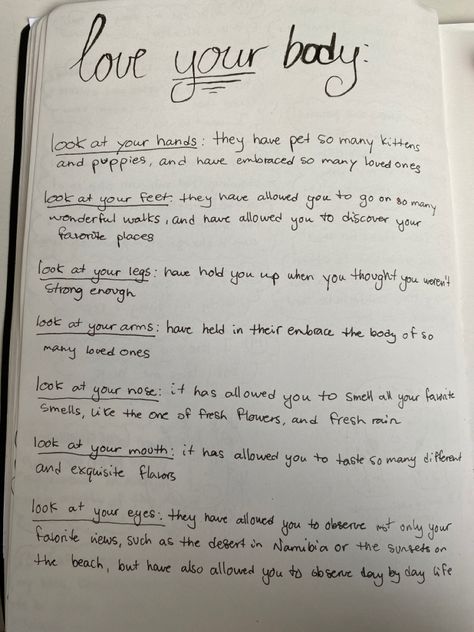 love your body:
look at your hands: they have pet so many kittens
and puppies, and have embraced so many loved ones
look at your feet: they have allowed you to go on so many
wonderful walks, and have allowed you to discover your
favorite places
look at your legs: have hold you up when you thought you weren't
strong enough
look at your arms: have held in their embrace the body of so
many loved ones
look at your nose: it has allowed you to smell all your favorite
smells, like the one of fresh flowers, and fresh rain
look at your mouth: it has allowed you to taste so many different
and exquisite flavors
look at your eyes: they have allowed you to observe not only your
favorite views, such as the desert in Namibia or the sunsets on
the beach, but have also allowed you to observe day by day life